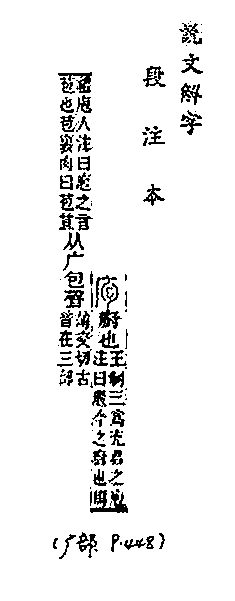 說文解字
段注本
廚也
王制三爲充君之庖
注曰庖今之廚也周
禮庖人注曰庖之言
苞也苞裹肉曰苞苴
从广包聲
薄交切古
音在三部
(广部 P.448)